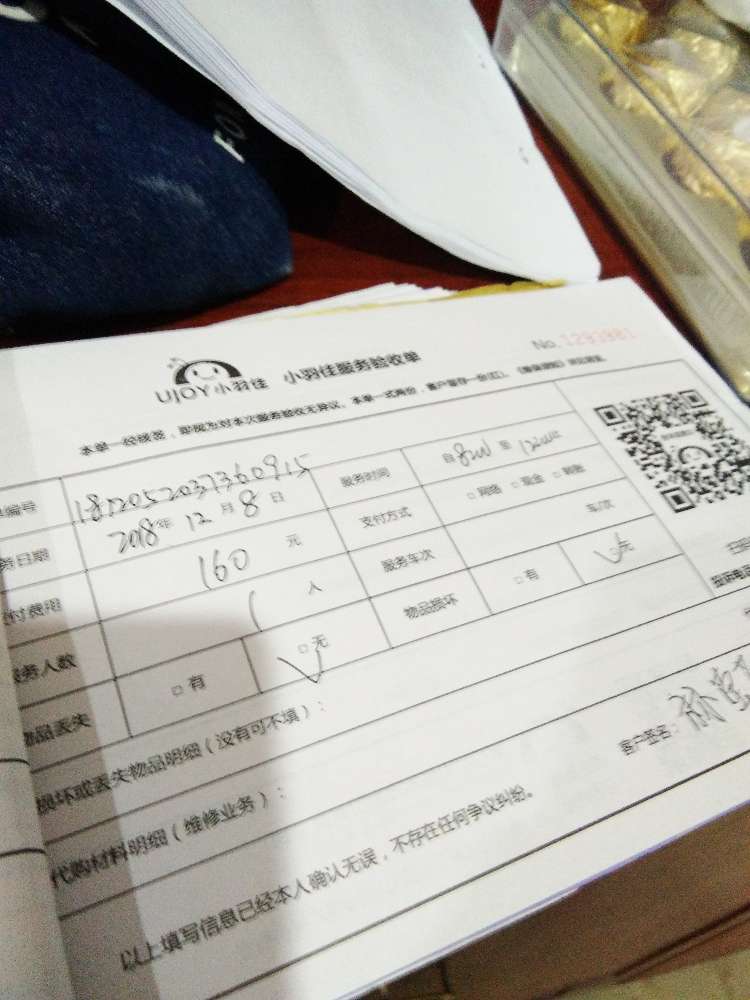 FO
No.1293801
UJOY小羽佳 小羽佳服务验收单
本单一经核签，即视为对本次服务验收无异议。本单一式两份，客户留存一份
编号 1812052037360915 服务时间 自 8:00 至 12:00
务日期 2018年 12月 8日 支付方式 □网络 □现金 □转账
付费用 160 元 服务车次 车/次
服务人数 1 人 物品损坏 □有 □无
物品丢失 □有 □无
损坏或丢失物品明细（没有可不填）：
代购材料明细（维修业务）：
客户签名：
以上填写信息已经本人确认无误，不存在任何争议纠纷。